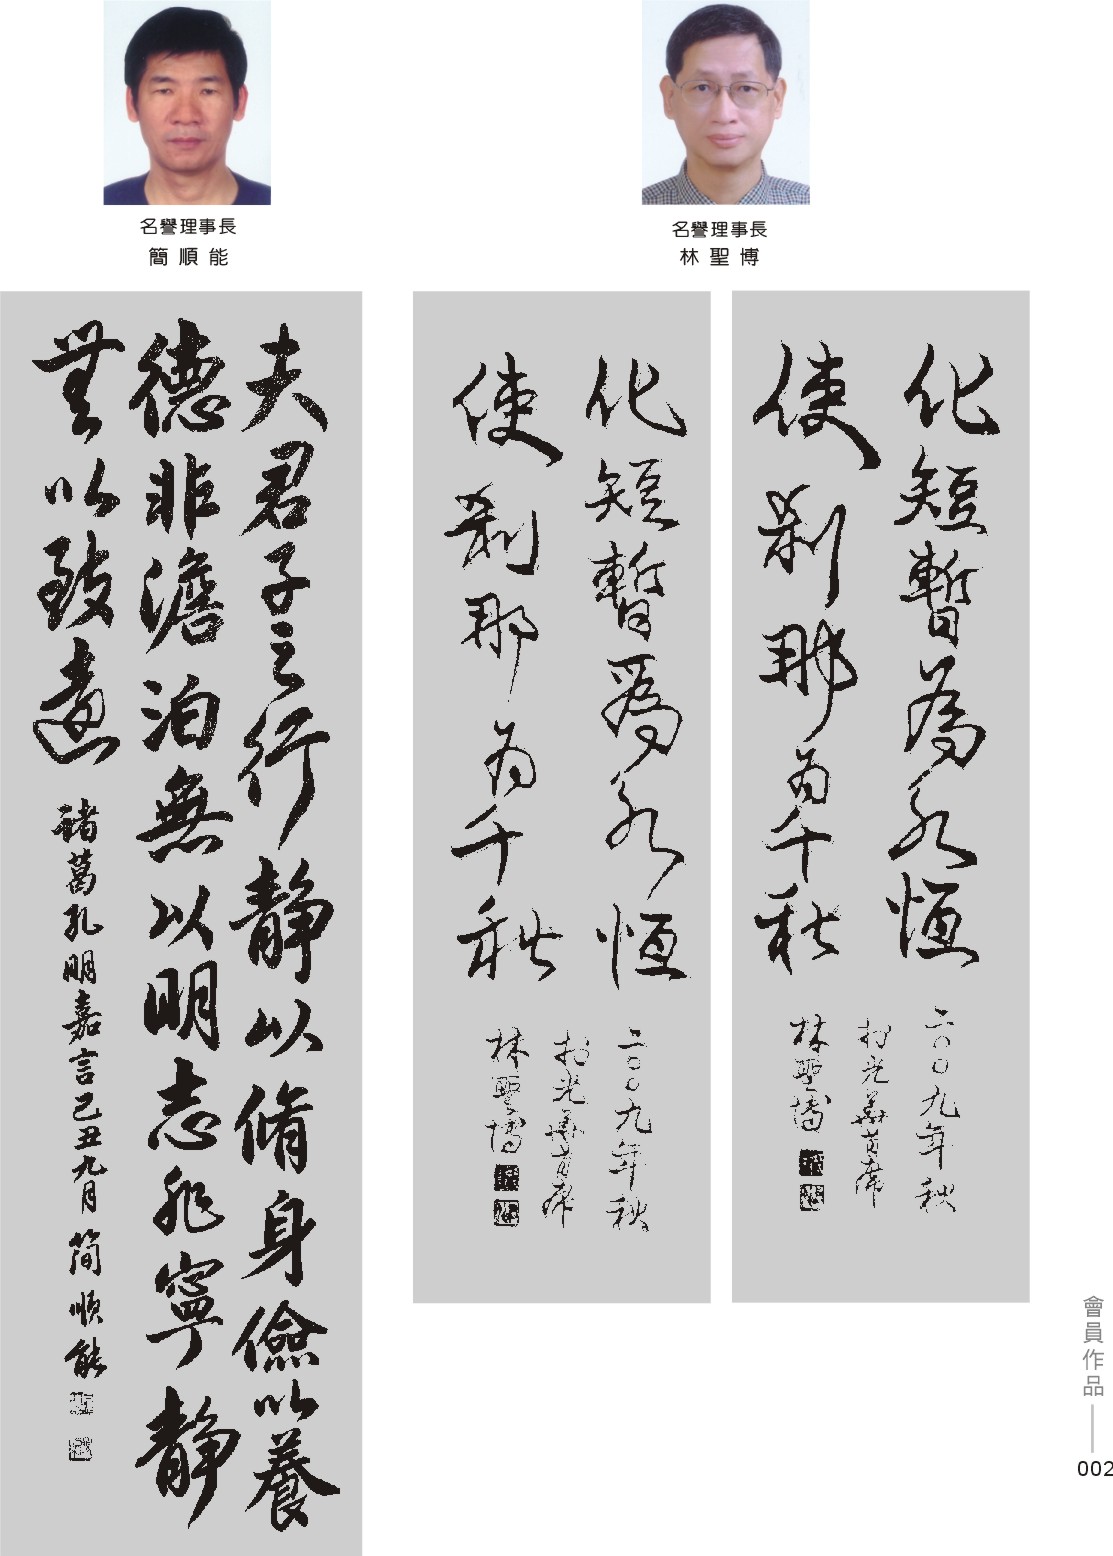 名譽理事長
簡順能
名譽理事長
林聖博
夫君子之行靜以脩身儉以養
德非澹泊無以明志非寧靜
無以致遠
諸葛孔明嘉言己丑九月 簡順能
化短暫為永恒
使剎那為千秋
二〇〇九年秋
於光華首席
林聖博
化短暫爲永恒
使剎那为千秋
二〇〇九年秋
於光華首席
林聖博
會員作品
002